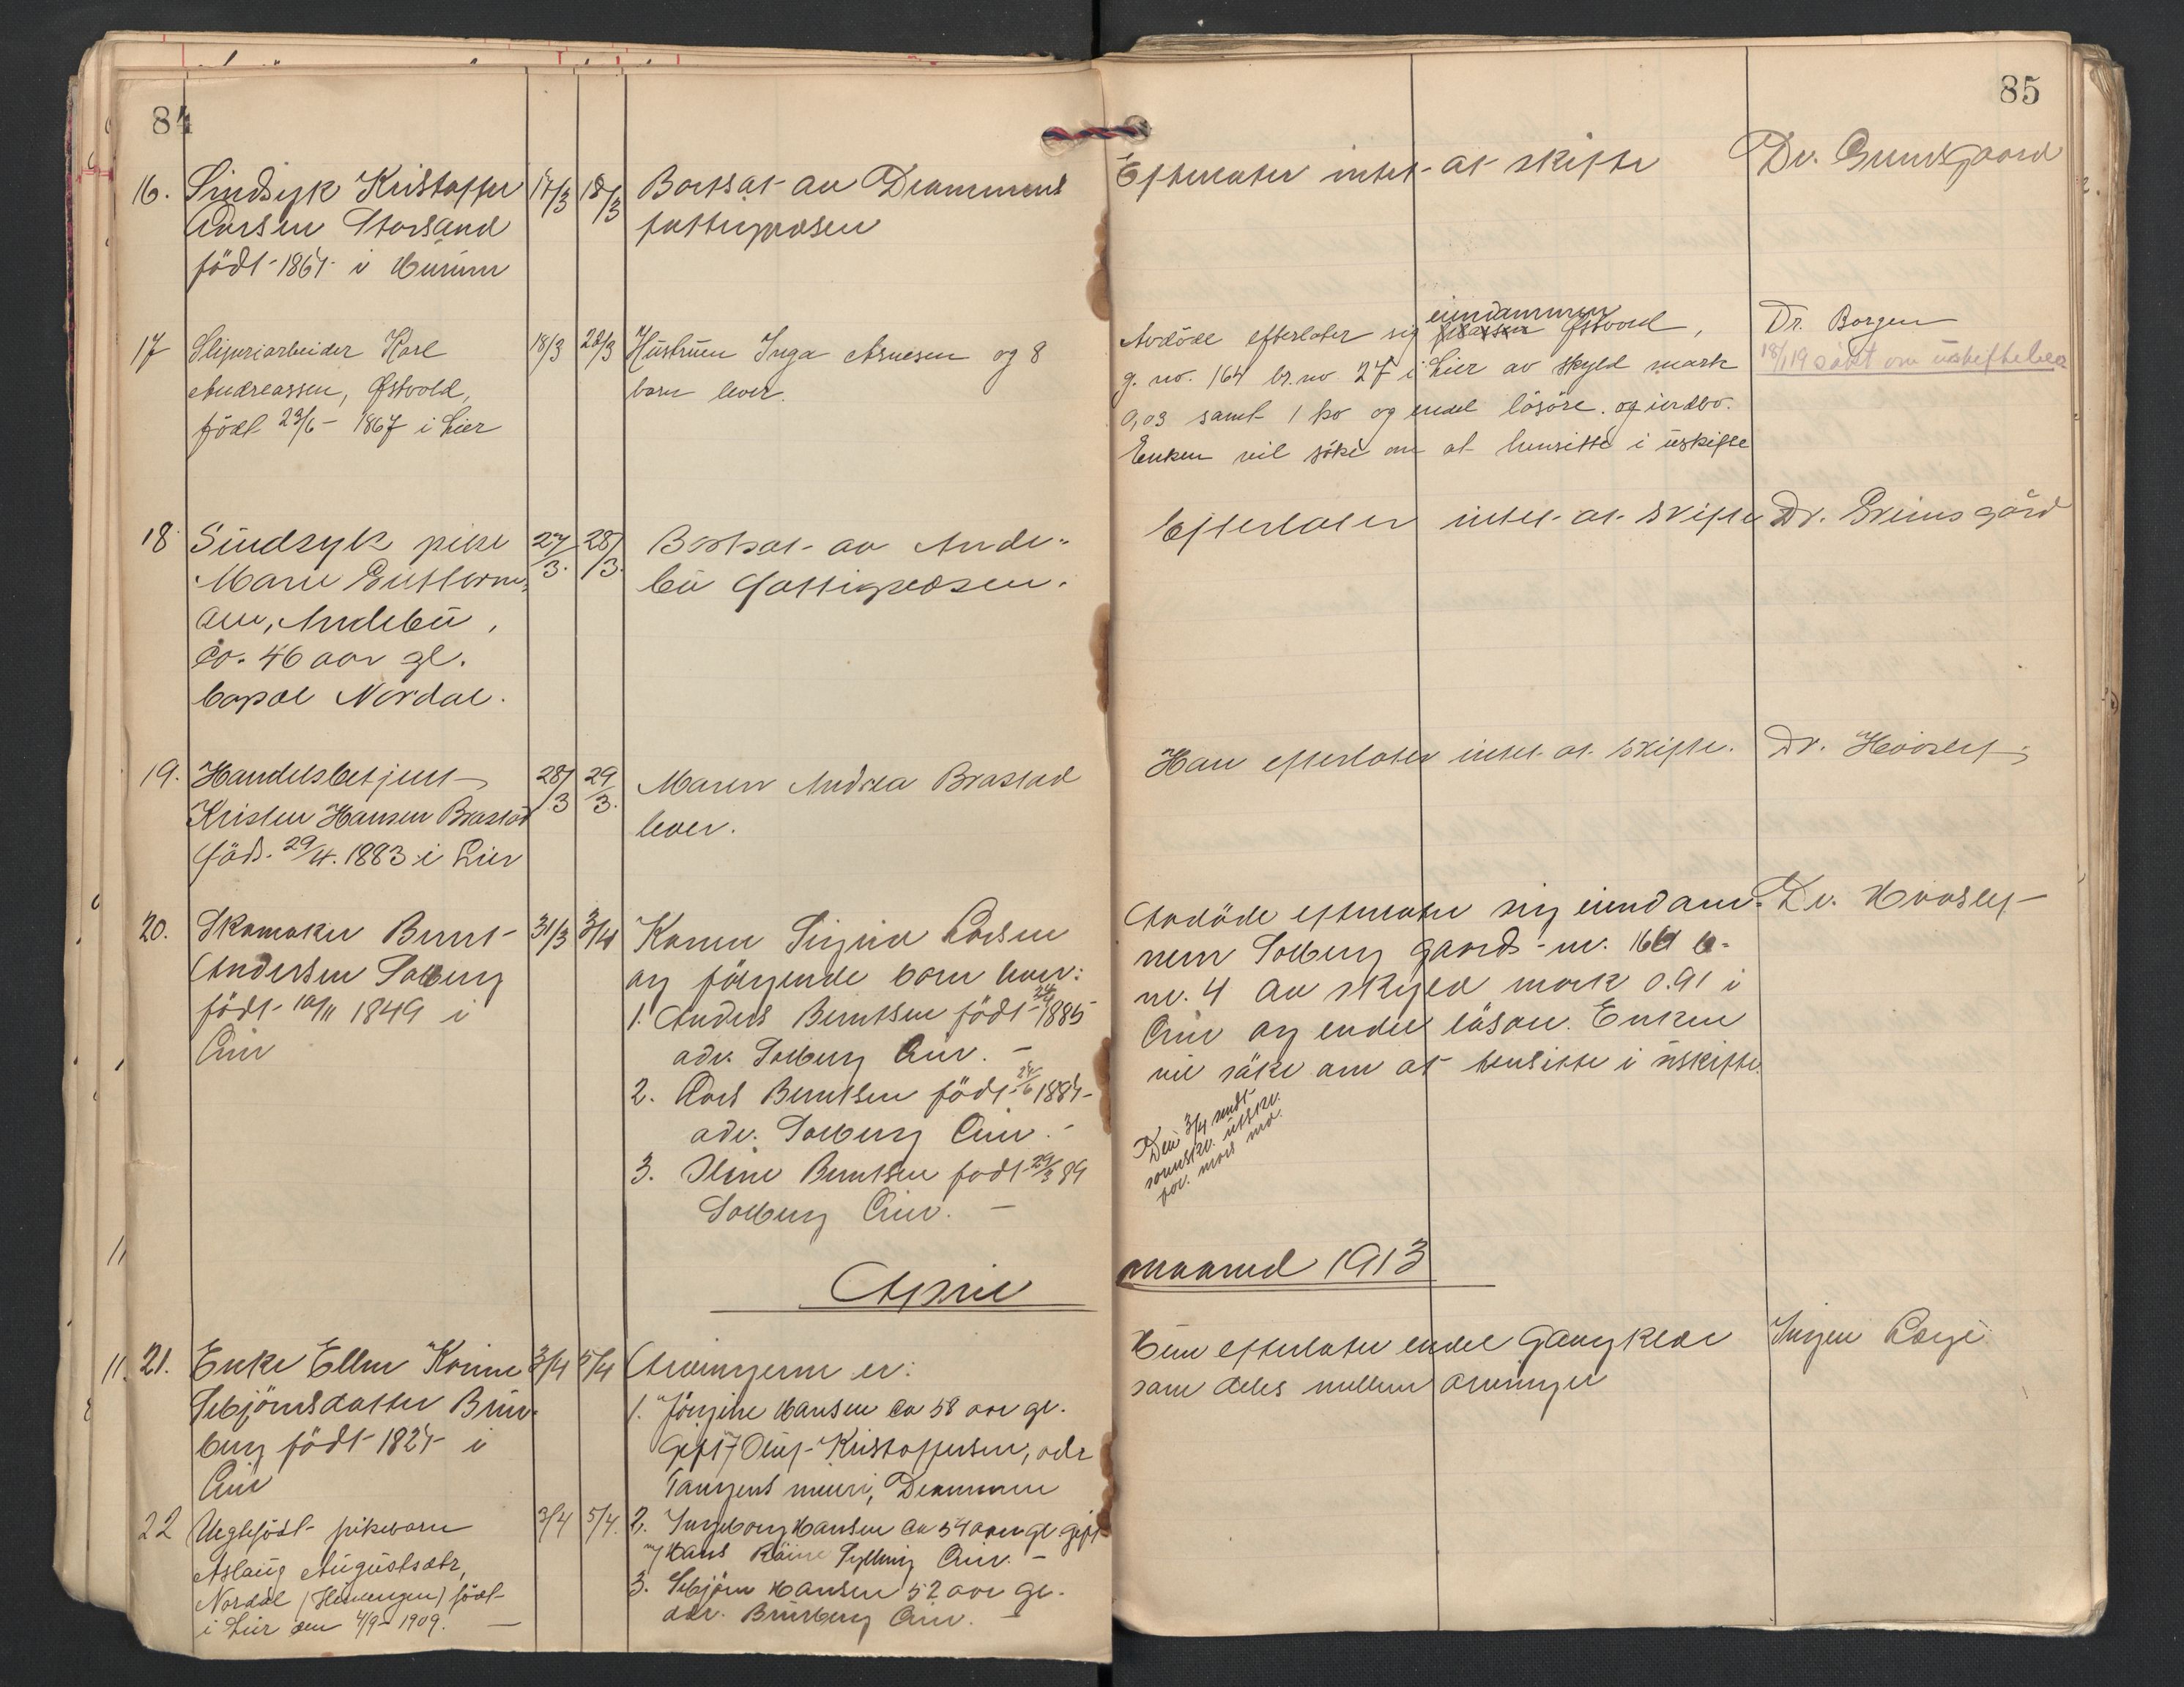 84
16. Sindsyk Kristoffer 17/3 18/3 Bortsat av Drammens
Larsen Storsand fattigvæsen
født 1864 i Hurum
17 Sliperiarbeider Karl 18/3 28/3 Hustruen Inga Arnesen og 8
Andreassen, Østvold, barn lever.
født 23/6- 1867 i Lier
18 Sindsyk pike 27/3. 28/3. Bortsat av Ande-
Marie bu Fattigvæsen.
Andebu,
ca. 46 aar gl.
Nordal.
19. Handelsbetjent 28/3 29/3. Maren Andrea Brastad
Kristen Hansen Brastad lever.
född. 29/4. 1883 i Lier
20. Skomaker Bernt 31/3 3/4 Karen Sigrid Larsen
Andersen Solberg og følgende barn lever:
født 10/11 1849 i 1. Anders Berntsen født 1885
Lier adr. Solberg Lier. -
2. Lars Berntsen født 1887-
adr. Solberg Lier. -
3. Berntsen født 89
Solberg Lier. -
April
21. Enke Ellen Karine 3/4 5/4 Arvingerne er:
Sebjørnsdatter Brur- 1. Jørgine Hansen ca 58 aar gl.
berg født 1824 i gift m/ Oluf Kristoffersen, adr
Lier Tangens mueri, Drammen
22 Uegtefødt pikebarn 3/4 5/4. 2. Ingeborg Hansen ca 54 aar gl. gift
Aslaug Augustsdtr, m/ Hans Sylling Lier. -
Nordal født 3. Sebjørn Hansen 52 aar gl.
i Lier den 4/9- 1909. - adr. Brurberg Lier. -
85
Efterlater intet at skifte Dr. Grimsgaard
eiendommen
Avdøde efterlater sig Østvold, Dr. Borgen
g. no. 164 br. no 27 i Lier av skyld mark 18/1 19 søkt om
0,03 samt 1 ko og endel løsøre og indbo.
Enken vil søke om at hensitte i uskifte
Efterlater intet at skifte Dr. Grimsgård
Han efterlater intet at skifte. Dr. Hovslef
Avdøde efterlater sig eiendom- Dr. Hovslef
men Solberg gaards-nr. 164 b-
nr. 4 av skyld mark 0.91 i
Lier og endel løsøre. Enken
vil søke om at hensitte i uskifte.
Den 3/4 sendt
for. mars md.
maaned 1913
Hun efterlater endel gangklær Ingen Læge
som deles mellem arvinger